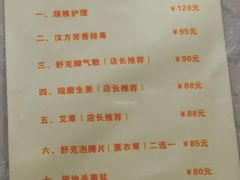 一、颈椎护理 ￥128元
二、汉方芳香排毒 ￥95元
三、舒克脚气散（店长推荐） ￥90元
四、现磨生姜（店长推荐） ￥88元
五、艾草（店长推荐） ￥88元
六、舒克泡腾片（薰衣草）二选一 ￥85元
￥80元